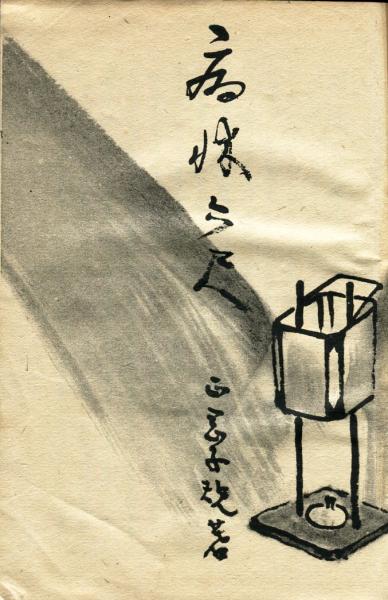 病牀六尺
正岡子規著